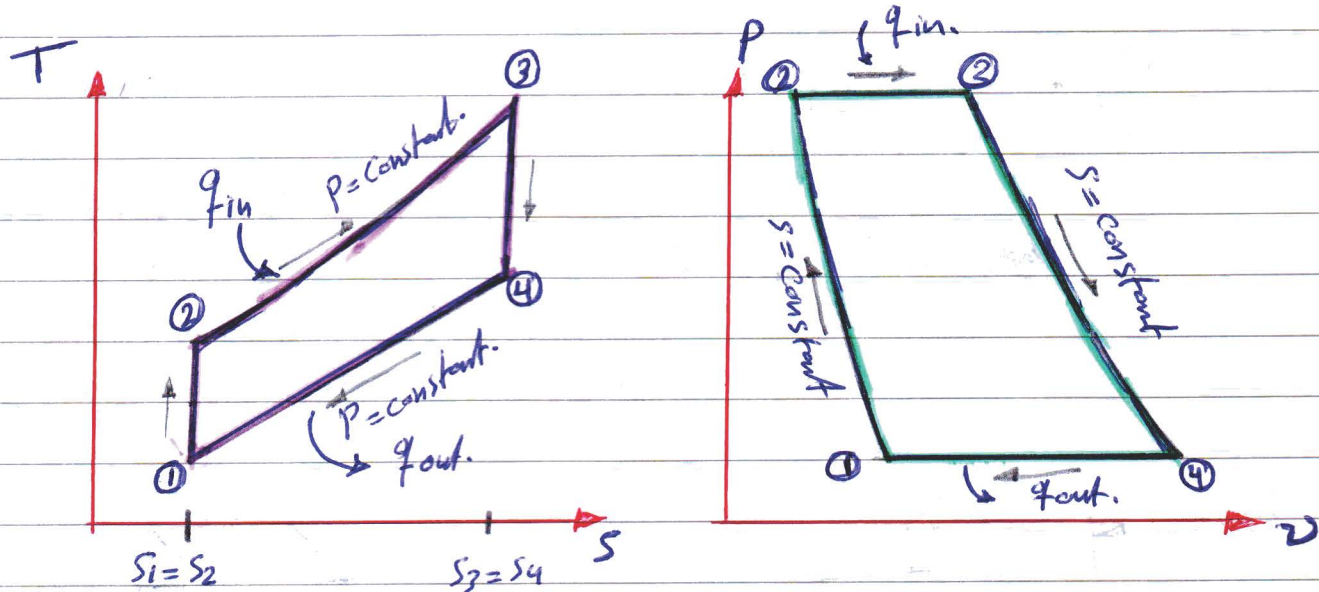 T
③
P = Constant.
q in
②
④
P = Constant.
q out.
①
S
S1 = S2
S3 = S4
P
q in.
②
②
S = Constant
S = Constant
①
④
q out.
v